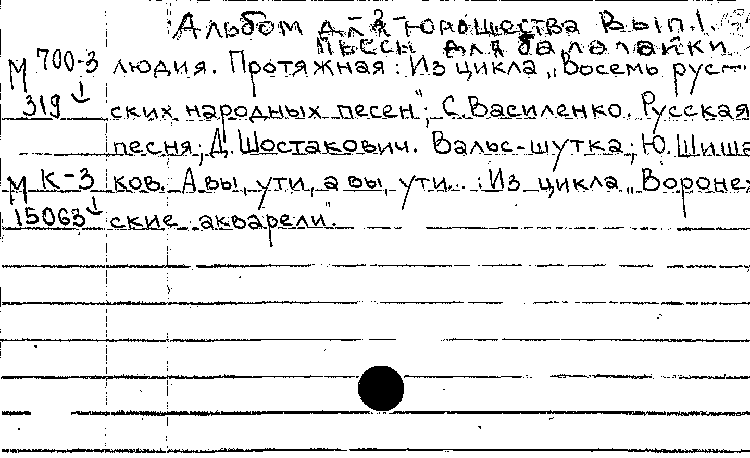 Альбом для юношества Вып.1.
Пьесы для балалайки
М 700-3 людия. Протяжная: Из цикла „Восемь рус-
319 ских народных песен"; С. Василенко. Русская
песня; Д. Шостакович. Вальс-шутка; Ю. Шиша
М К-3 ков. А вы, ути, а вы, ути...: Из цикла „Воронеж
15063 ские акварели".